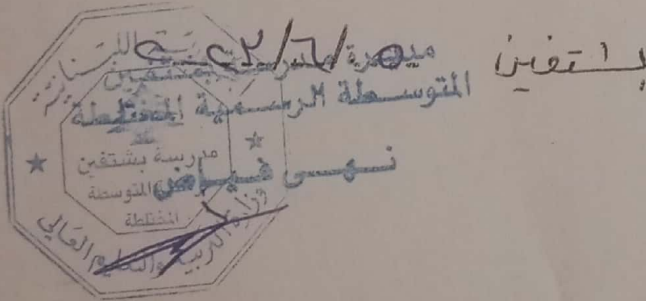 بشتفين ٢٠٢٣/٦/٥
مديرة مدرسة بشتفين
المتوسطة الرسمية المختلطة
نهى فياض
الجمهورية اللبنانية
مدرسة بشتفين
المتوسطة
المختلطة
وزارة التربية والتعليم العالي